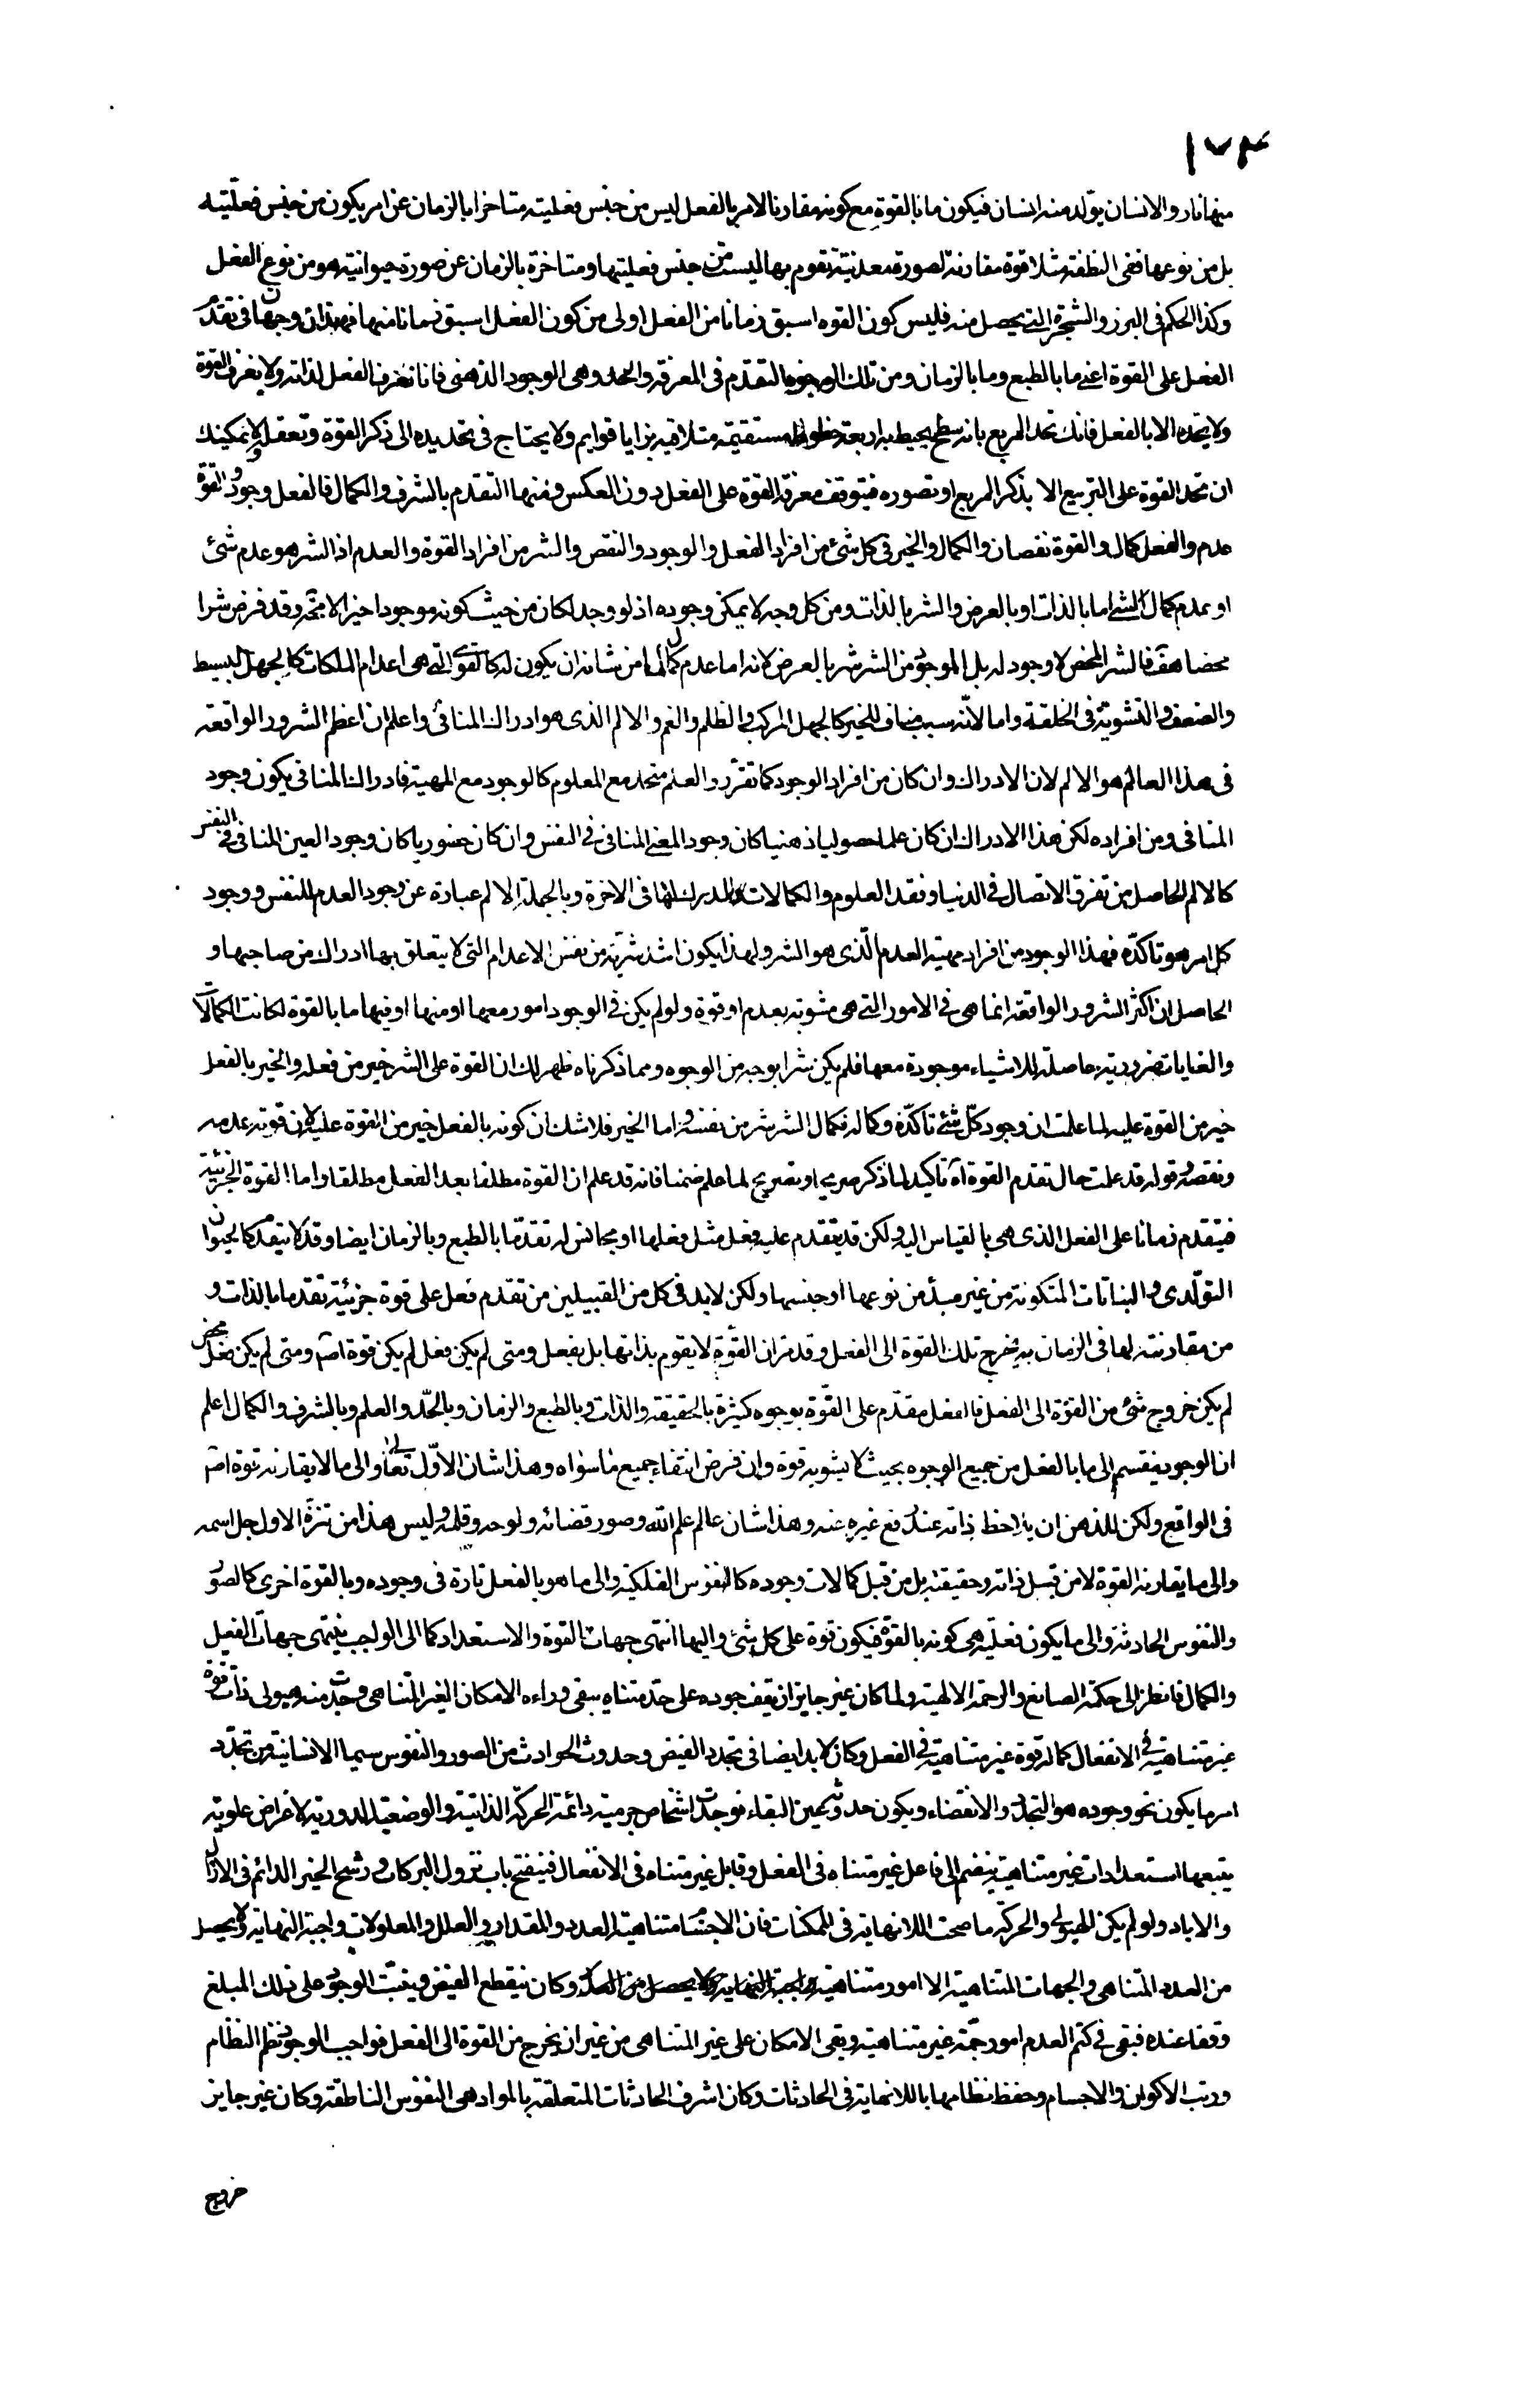 ١٧٤
منها نار والانسان يتولد منه انسان فيكون ما بالقوة مع كونه مقارنا لامر بالفعل ليس من جنس فعليته متاخرا بالزمان عن امر يكون من جنس فعليته
بل من نوعها ففى النطفة مثلا قوة مقارنة لصورة معدنية تقوم بها ليست من جنس فعليتها ومتاخرة بالزمان عن صورة حيوانية هو من نوع الفعل
وكذا الحكم فى البرز والشجرة التى يحصل منه فليس كون القوه اسبق زمانا من الفعل اولى من كون الفعل اسبق زمانا منها فهذان وجهان فى تقدم
الفعل على القوة اعنى ما بالطبع وما بالزمان ومن تلك الوجوه التقدم فى المعرفة والحد وهى الوجود الذهنى فانا نعرف الفعل لذاته ولا نعرف القوة
ولا يحده الا بالفعل فانك تحد المربع بانه سطح يحيط به اربعة خطوط مستقيمة متلاقيه بزايا قوايم ولا يحتاج فى تحديده الى ذكر القوة وتعقله ولا يمكنك
ان تحد القوة على التربيع الا بذكر المربع او تصوره فيتوقف معرفة القوة على الفعل دون العكس ومنها التقدم بالشرف والكمال فالفعل وجود والقوة
عدم والفعل كمال والقوة نقصان والكمال والخير فى كل شئ من افراد الفعل والوجود والنقص والشر من افراد القوة والعدم اذ الشر هو عدم شئ
او عدم كمال الشئ اما بالذات او بالعرض والشر بالذات ومن كل وجه لا يمكن وجوده اذ لو وجد لكان من حيث كونه موجودا خيرا لا محة وقد فرض شرا
محضا هف فالشر المحض لا وجود له بل الموجود من الشر شر بالعرض لانه اما عدم كمال لما من شانه ان يكون له كالقوى التى هى اعدام الملكات كالجهل البسيط
والضعف والتشوية فى الخلقة واما لانه سبب مناف للخير كالجهل المركب والظلم والغم والالم الذى هو ادراك المنافى واعلم ان اعظم الشرور الواقعة
فى هذا العالم هو الالم لان الادراك وان كان من افراد الوجود كما تقرر والعلم متحد مع المعلوم كالوجود مع المهية فادراك المنافى يكون وجود
المنافى ومن افراده لكن هذا الادراك ان كان علما حصوليا ذهنيا كان وجود المعنى المنافى فى النفس وان كان حضوريا كان وجود العين المنافى فى النفس
كالالم الحاصل من تفرق الاتصال فى الدنيا وفقد العلوم والكمالات والمدرك لها فى الاخرة وبالجملة الالم عبارة عن وجود العدم للنفس ووجود
كل امر هو تاكده فهذا الوجود من افراد مهية العدم الذى هو الشر ولهذا يكون اشد شرية من نفس الاعدام التى لا يتعلق بها ادراك من صاحبها و
الحاصل ان اكثر الشرور الواقعة انما هى فى الامور التى هى مشوبة بعدم او قوة ولو لم يكن فى الوجود امور معها او منها او فيها ما بالقوة لكانت الكمالات
والغايات ضرورية حاصلة للاشياء موجودة معها فلم يكن شرا بوجه من الوجوه ومما ذكرناه ظهر لك ان القوة على الشر خير من فعله والخير بالفعل
خير من القوة عليه لما علمت ان وجود كل شئ تاكده وكماله فكمال الشر شر من نفسه واما الخير فلا شك ان كونه بالفعل خير من القوة عليه لان قوته عدمه
ونقصه قوله قد علمت حال تقدم القوة آه تاكيد لما ذكر صريحا وتصريح لما علم ضمنا فانه قد علم ان القوة مطلقا بعد الفعل مطلقا واما القوة الجزئية
فيتقدم زمانا على الفعل الذى هى بالقياس اليه ولكن قد يتقدم عليه فعل مثل فعلها او مجانس له تقدما بالطبع وبالزمان ايضا وقد لا يتقدم كالحيوان
التولدى والنباتات المتكونة من غير مبدأ من نوعها او جنسها ولكن لابد فى كل من القبيلين من تقدم فعل على قوة جزئية تقدما ما بالذات و
من مقارنته لها فى الزمان به يخرج تلك القوة الى الفعل وقد مر ان القوة لا يقوم بذاتها بل بفعل ومتى لم يكن فعل لم يكن قوة اصلا ومتى لم يكن فعل محض
لم يكن خروج شئ من القوة الى الفعل فالفعل مقدم على القوة بوجوه كثيرة بالحقيقة والذات وبالطبع والزمان وبالحد والعلم وبالشرف والكمال اعلم
ان الوجود ينقسم الى ما بالفعل من جميع الوجوه بحيث لا يشوبه قوة وان فرض انتفاء جميع ما سواه وهذا شان الاول تعالى والى ما لا يقارنه قوة اصلا
فى الواقع ولكن للذهن ان يلاحظ ذاته عند رفع غيره عنه وهذا شان عالم علم الله وصور قضائه ولوحه وقلمه وليس هذا من تنزه الاول جل اسمه
والى ما يقارنه القوة لا من قبل ذاته وحقيقته بل من قبل كمالات وجوده كالنفوس الفلكية والى ما هو بالفعل تارة فى وجوده وبالقوة اخرى كالصور
والنفوس الحادثة والى ما يكون فعليته هى كونه بالقوة فيكون قوة على كل شئ واليها انتهى جهات القوة والاستعداد كما الى الواجب ينتهى جهات الفعل
والكمال فانظر الى حكمة الصانع والرحمة الالهية ولما كان غير جايز ان يقف جوده على حد متناه يبقى وراءه الامكان الغير المتناهى وجدت منه هيولى ذات قوة
غير متناهية فى الانفعال كما له قوة غير متناهية فى الفعل وكان لابد ايضا فى تجدد الفيض وحدوث الحوادث من الصور والنفوس سيما الانسانية من تجدد
امر ما يكون نحو وجوده هو التجدد والانقضاء ويكون حدوثه عين البقاء فوجدت اشخاص جرمية دائمة الحركة الذاتية والوضعية الدورية لاغراض علوية
يتبعها استعدادات غير متناهية ينضم الى فاعل غير متناه فى الفعل وقابل غير متناه فى الانفعال فينفتح باب نزول البركات ورشح الخير الدائم فى الازال
والاباد ولو لم يكن الهيولى والحركة ما صحت اللانهاية فى الممكنات فان الاجسام متناهية العدد والمقدار والعلل والمعلولات واجبة النهاية ولا يحصل
من العدد المتناهى والجهات المتناهية الا امور متناهية وكان ينقطع الفيض ويثبت الوجود على ذلك المبلغ
وقفا عنده فبقى فى كتم العدم امور جمة غير متناهية ويبقى الامكان على غير المتناهى من غير ان يخرج من القوة الى الفعل فواجب الوجود نظم النظام
ورتب الاكوان والاجسام وحفظ نظامها باللانهاية فى الحادثات وكان اشرف الحادثات المتعلقة بالمواد هى النفوس الناطقة وكان غير جايز
خروج